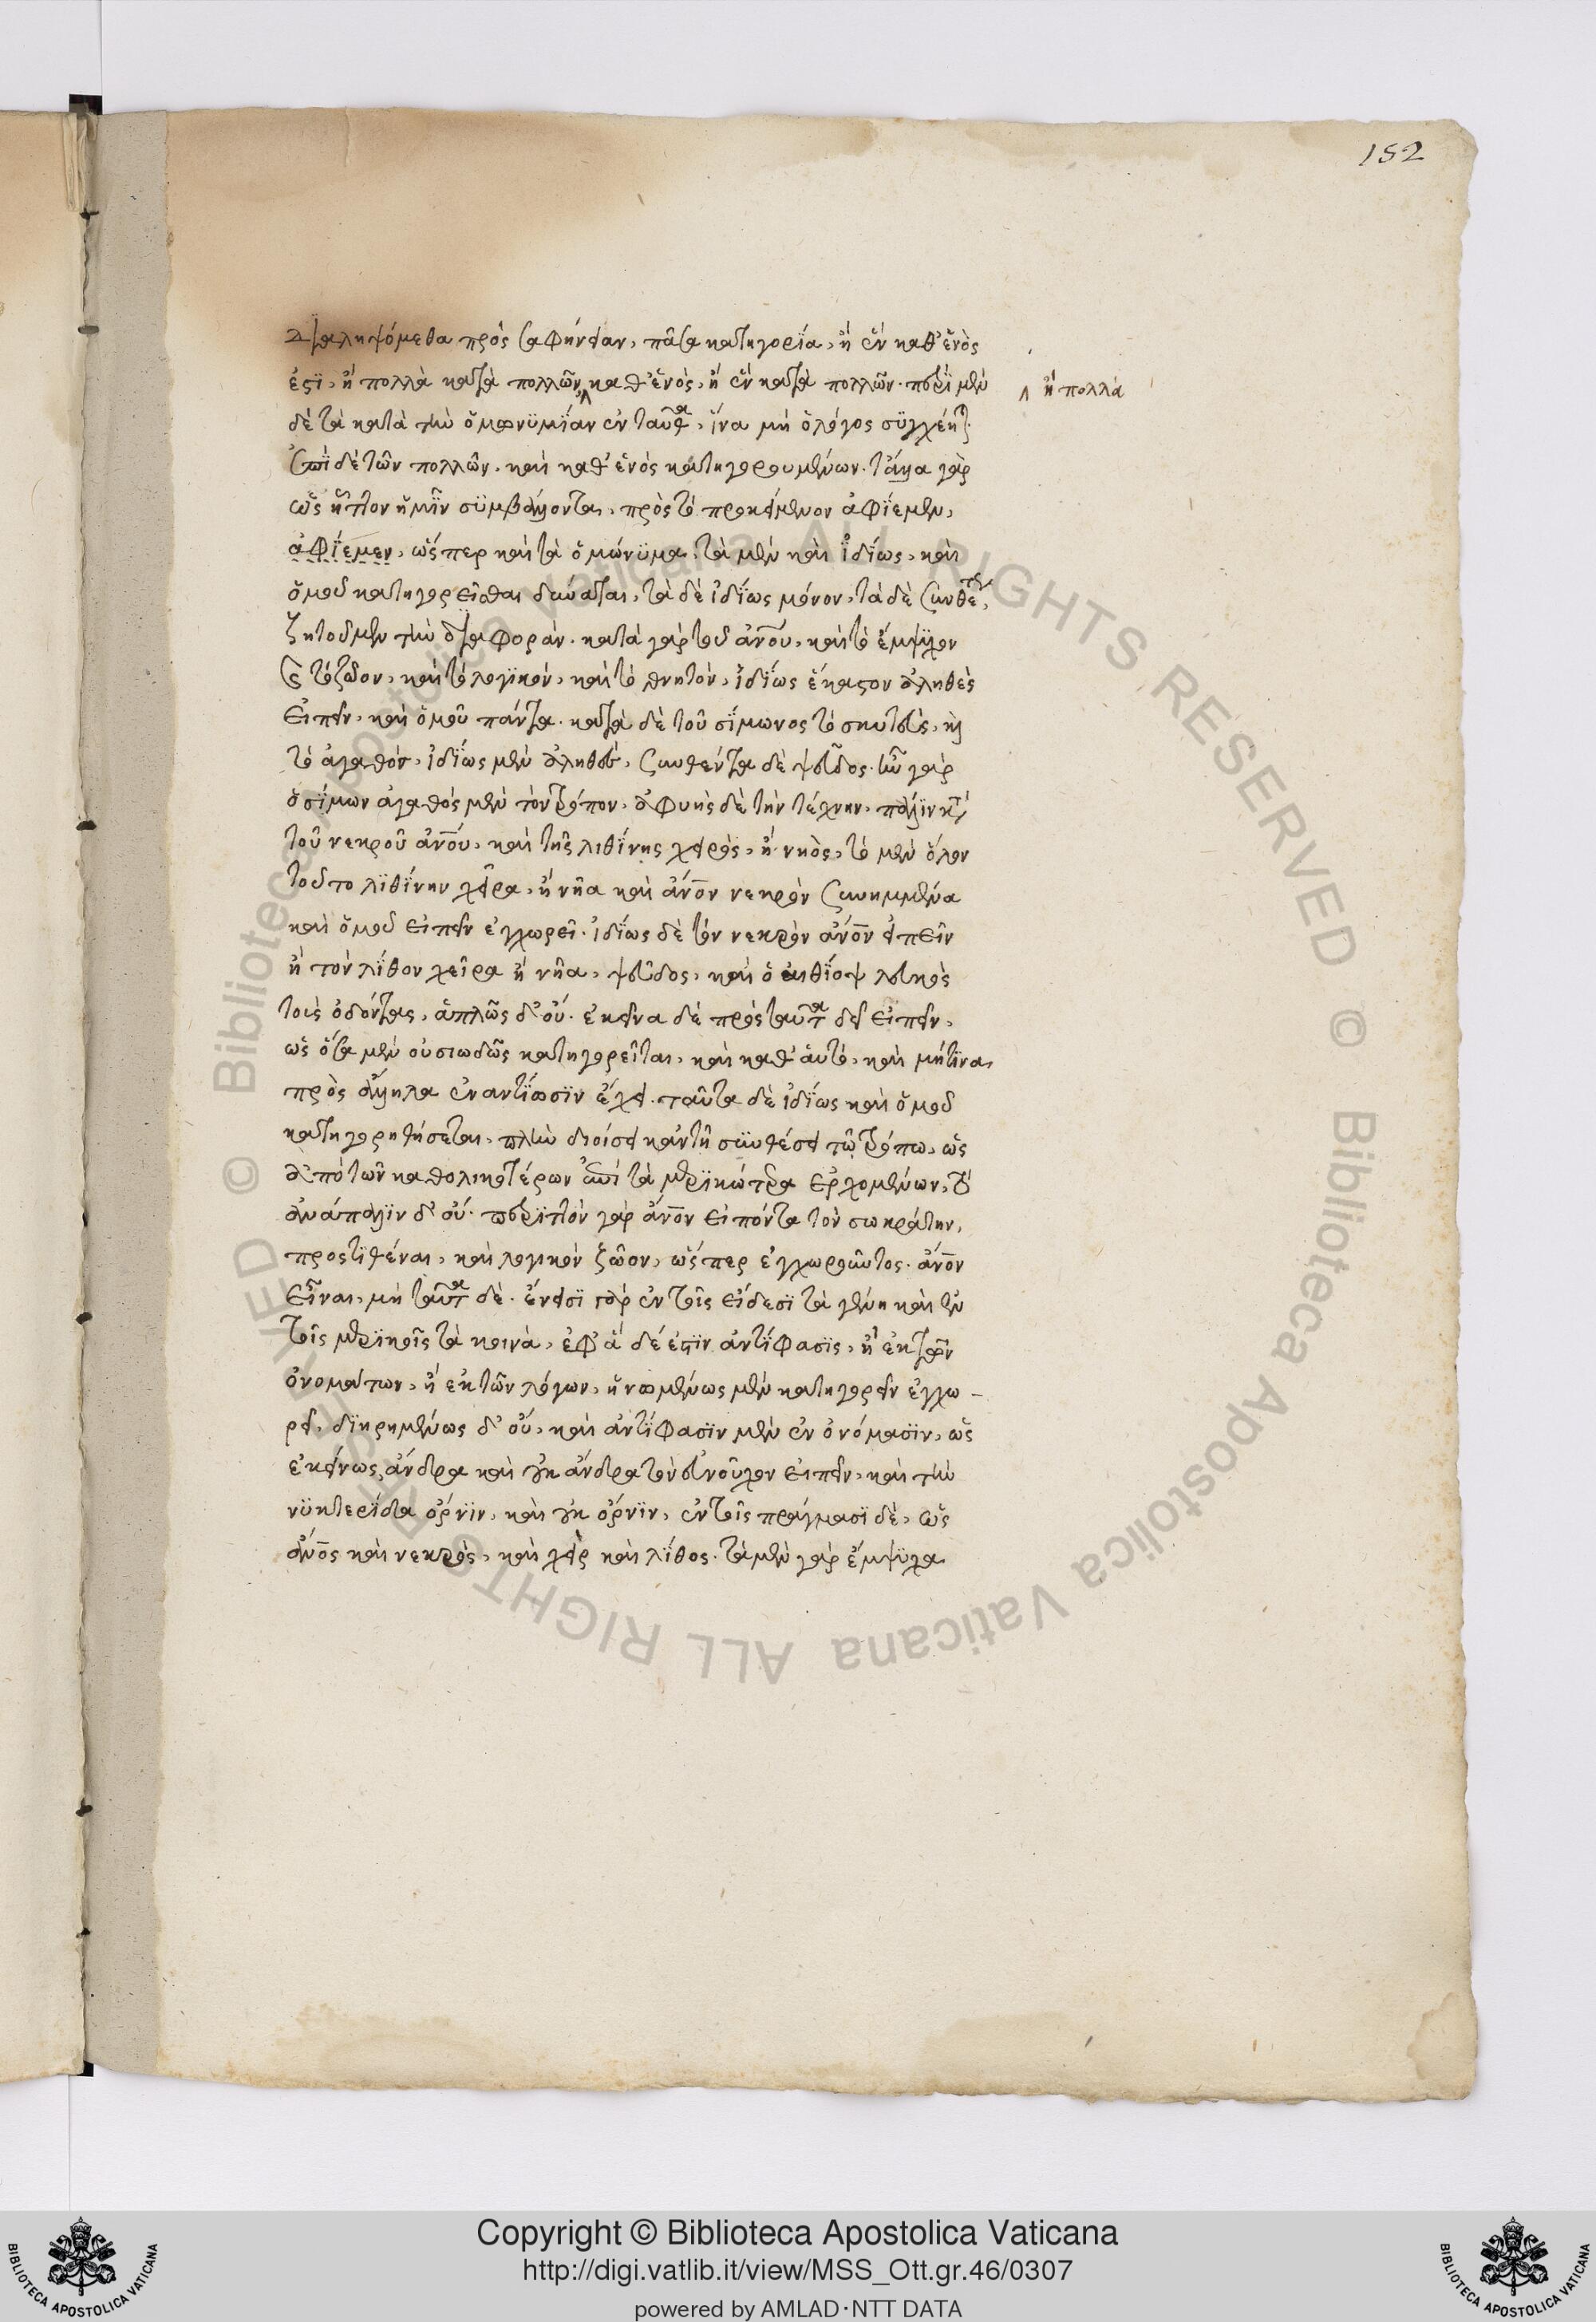 152
διαληψόμεθα πρὸς σαφήνειαν, πᾶσα κατηγορία, ἢ ἓν καθ' ἑνὸς
ἐστὶ, ἢ πολλὰ κατὰ πολλῶν, καθ' ἑνὸς, ἢ ἓν κατὰ πολλῶν. περὶ μὲν
ἢ πολλὰ
δὲ τὰ κατὰ τὴν ὁμωνυμίαν ἐνταῦθα, ἵνα μὴ ὁ λόγος συγχέητ
ἐπὶ δὲ τῶν πολλῶν. καὶ καθ' ἑνὸς κατηγορουμένων. τἄλλα γὰρ
ὡς ἧττον ἡμῖν συμβάλλοντα, πρὸς τὸ προκείμενον ἀφίεμεν,
ἀφίεμεν, ὥσπερ καὶ τὰ ὁμώνυμα, τὰ μὲν καὶ ἰδίως, καὶ
ὁμοῦ κατηγορεῖσθαι δύναται, τὰ δὲ ἰδίως μόνον, τὰ δὲ
ζητοῦμεν τὴν διαφορὰν. κατὰ γὰρ τοῦ ἀνου, καὶ τὸ ἔμψυχον
καὶ τὸ ζῶον, καὶ τὸ λογικὸν, καὶ τὸ θνητὸν, ἰδίως ἕκαστον ἀληθὲς
εἰπεῖν, καὶ ὁμοῦ πάντα. κατὰ δὲ τοῦ σίμωνος τὸ σκυτεὺς, καὶ
τὸ ἀγαθὸν, ἰδίως μὲν ἀληθεῖ, συντεθέντα δὲ ψεῦδος. ἦν γὰρ
ὁ σίμων ἀγαθὸς μὲν τὸν τρόπον, ἀφυὴς δὲ τὴν τέχνην, πάλιν κατὰ
τοῦ νεκροῦ ἀνου, καὶ τῆς λιθίνης χειρὸς, ἢ νηὸς, τὸ μὲν ὅλον
τοῦτο λιθίνην χεῖρα, ἢ νῆα καὶ ἀνον νεκρὸν συνημμένα
καὶ ὁμοῦ εἰπεῖν ἐγχωρεῖ. ἰδίως δὲ τὸν νεκρὸν ἀνον εἰπεῖν
ἢ τὸν λίθον χεῖρα ἢ νῆα, ψεῦδος, καὶ ὁ αἰθίοψ λευκὸς
τοὺς ὀδόντας, ἁπλῶς δ' οὔ. ἐκεῖνα δὲ πρὸς ταῦτα δεῖ εἰπεῖν,
ὡς ὅσα μὲν οὐσιωδῶς κατηγορεῖται, καὶ καθ' αὑτὸ, καὶ μή τινα
πρὸς ἄλληλα ἐναντίωσιν ἔχει. ταῦτα δὲ ἰδίως καὶ ὁμοῦ
κατηγορηθήσεται, πλὴν διοίσει κἀν τῇ συνθέσει τῷ τρόπῳ, ὡς
ἀπὸ τῶν καθολικωτέρων ἐπὶ τὰ μερικώτερα ἐρχομένων, τὸ
ἀνάπαλιν δ' οὔ. περιττὸν γὰρ ἀνον εἰπόντα τὸν σωκράτην,
προστιθέναι, καὶ λογικὸν ζῶον, ὥσπερ ἐγχωροῦντος. ἀνον
εἶναι, μὴ ταῦτα δὲ. ἔνεισι γὰρ ἐν τοῖς εἴδεσι τὰ γένη καὶ ἐν
τοῖς μερικοῖς τὰ κοινὰ, ἐφ' ἃ δέ ἐστιν ἀντίφασις, ἢ ἐκ τῶν
ὀνομάτων, ἢ ἐκ τῶν λόγων, ἡνωμένως μὲν κατηγορεῖν ἐγχω-
ρεῖ, διηρημένως δ' οὔ, καὶ ἀντίφασιν μὲν ἐν ὀνόμασιν, ὡς
ἐκείνως, ἄνδρα καὶ οὐκ ἄνδρα τὸν εὐνοῦχον εἰπεῖν, καὶ τὴν
νυκτερίδα ὄρνιν, καὶ οὐκ ὄρνιν, ἐν τοῖς πράγμασι δὲ, ὡς
ἀνος καὶ νεκρὸς, καὶ χεὶρ καὶ λίθος. τὰ μὲν γὰρ ἔμψυχα
Copyright © Biblioteca Apostolica Vaticana
http://digi.vatlib.it/view/MSS_Ott.gr.46/0307
powered by AMLAD·NTT DATA